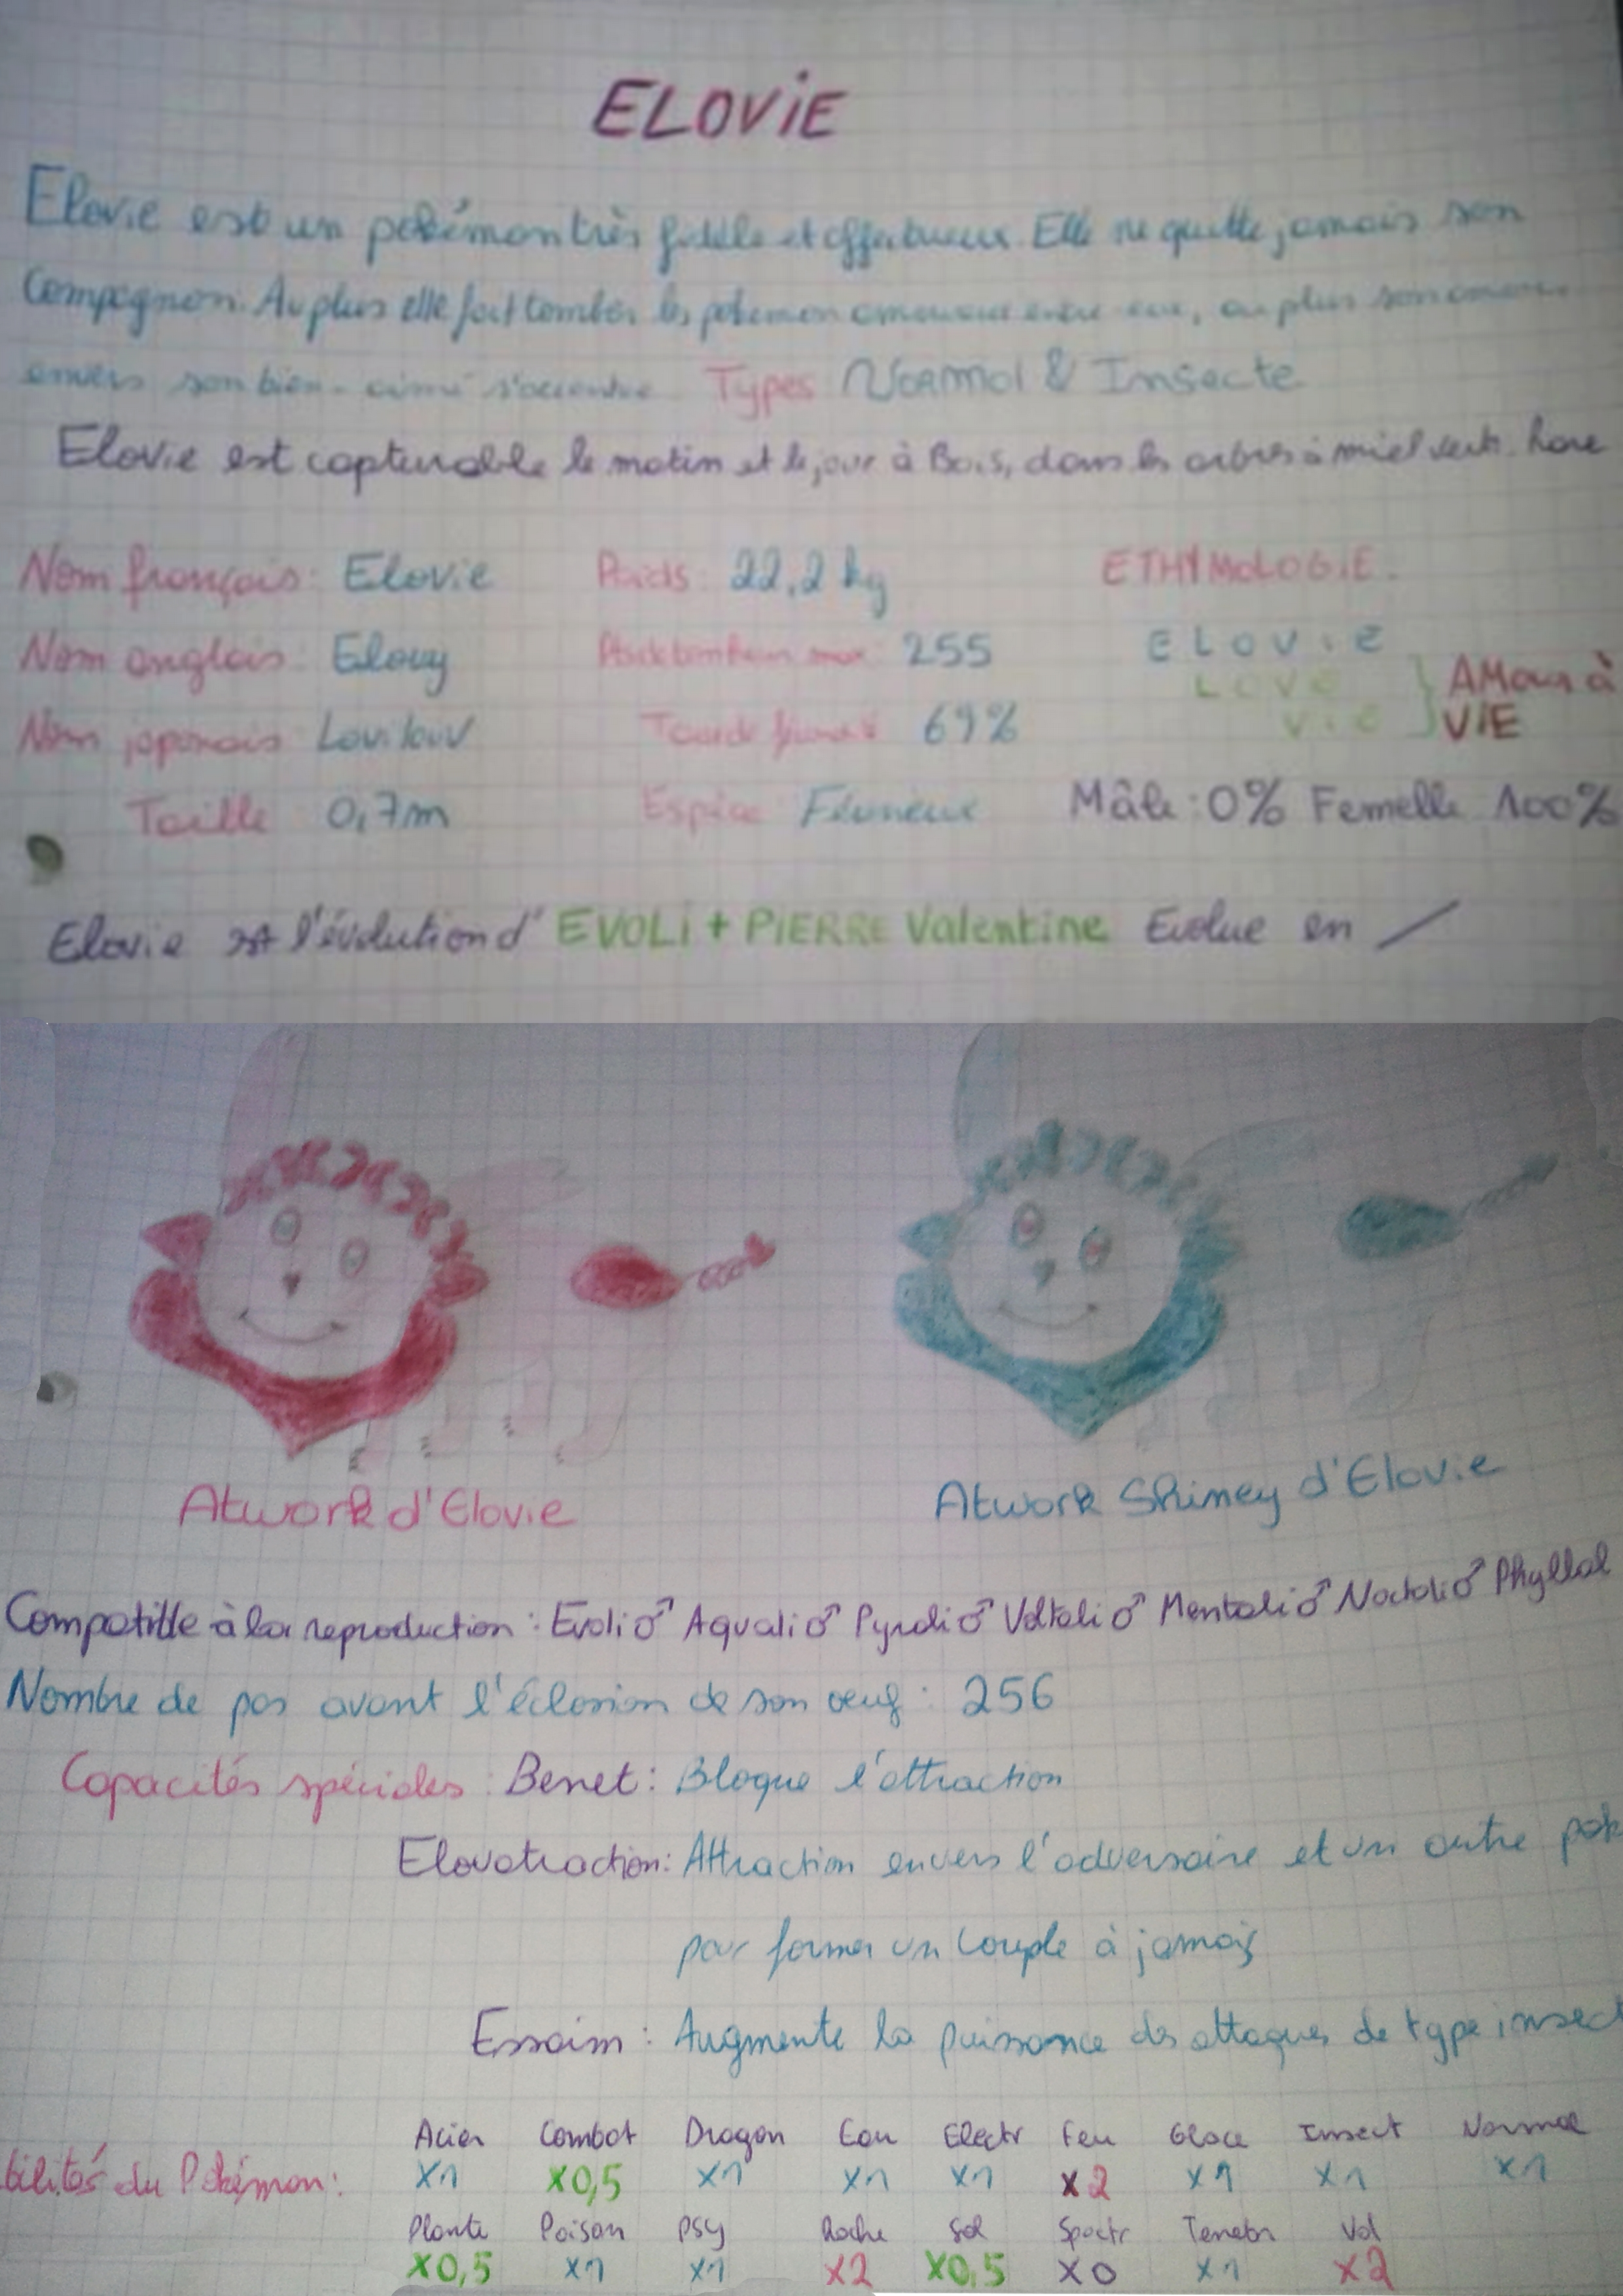 ELOViE
Elovie est un pokémon très fidèle et affectueux. Elle ne quitte jamais son
Compagnon. Au plus elle fait tomber les pokemon amoureux entre eux, au plus son amour
envers son bien-aimé s'accentue Types Normal & Insecte
Elovie est capturable le matin et le jour à Bois, dans les arbres à miel verts.
Nom français: Elovie Poids: 22,2 kg ETHYMOLOGIE.
Nom anglais: Elovy max: 255 ELOViE
LOVE } AMour à
Nom japonais Lovilouv 69% ViE } VIE
Taille 0,7m Espèce Mâle: 0% Femelle 100%
Elovie est l'évolution d' EVOLi + PiERRE Valentine Evolue en /
Atwork d'Elovie Atwork Shiney d'Elovie
Compatible à la reproduction: Evoli♂ Aquali♂ Pyroli♂ Voltali♂ Mentali♂ Noctali♂ Phyllal
Nombre de pas avant l'éclosion de son oeuf: 256
Capacités spéciales: Benet: Bloque l'attraction
Elovatraction: Attraction envers l'adversaire et un autre pok
pour former un couple à jamais
Essaim: Augmente la puissance des attaques de type insect
Acier Combat Dragon Eau Electr Feu Glace Insect Normal
bilités du Pokémon: X1 X0,5 X1 X1 X1 X2 X1 X1 X1
Plante Poison PSY Roche Sol Spectr Tenebr Vol
X0,5 X1 X1 X2 X0,5 X0 X1 X2